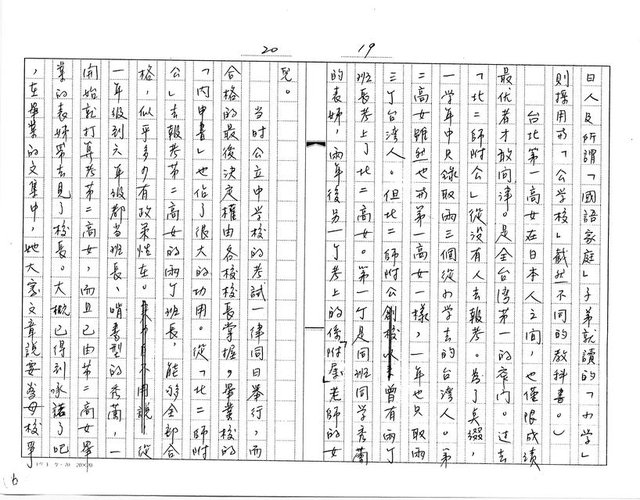 20 19
日人及所謂「國語家庭」子弟就讀的「小學」
則採用和「公學校」截然不同的教科書。」
台北第一高女在日本人之間，也僅限成績
最优者才敢问津。是全台湾第一的窄门。过去
「北二師附公」從没有人去報考。為了点缀，
一学年中只録取兩三個從小学去的台湾人。第
二高女雖然也和第一高女一樣，一年也只取兩
三个台湾人。但北二師附公曾有兩个
班長考上了北二高女。第一个是同班同学秀蘭
的表姊，兩年後另一个考上的係「附属」老師的女
兒。
當时公立中学校的考試一律同日舉行，而
合格的最後決定權由各校校長掌握，畢業校的
「内申書」也佔了很大的功用。從「北二師附
公」去報考第二高女的兩个班長，能够全部合
格，似乎多少有政策性在。從
一年級到六年級都當班長、啃書型的秀蘭，一
開始就打算考第二高女，而且已由第二高女畢
業的表姊帶去見了校長。大概已得到承諾了吧
，在畢業的文集中，她大寫文章說要為母校争
6